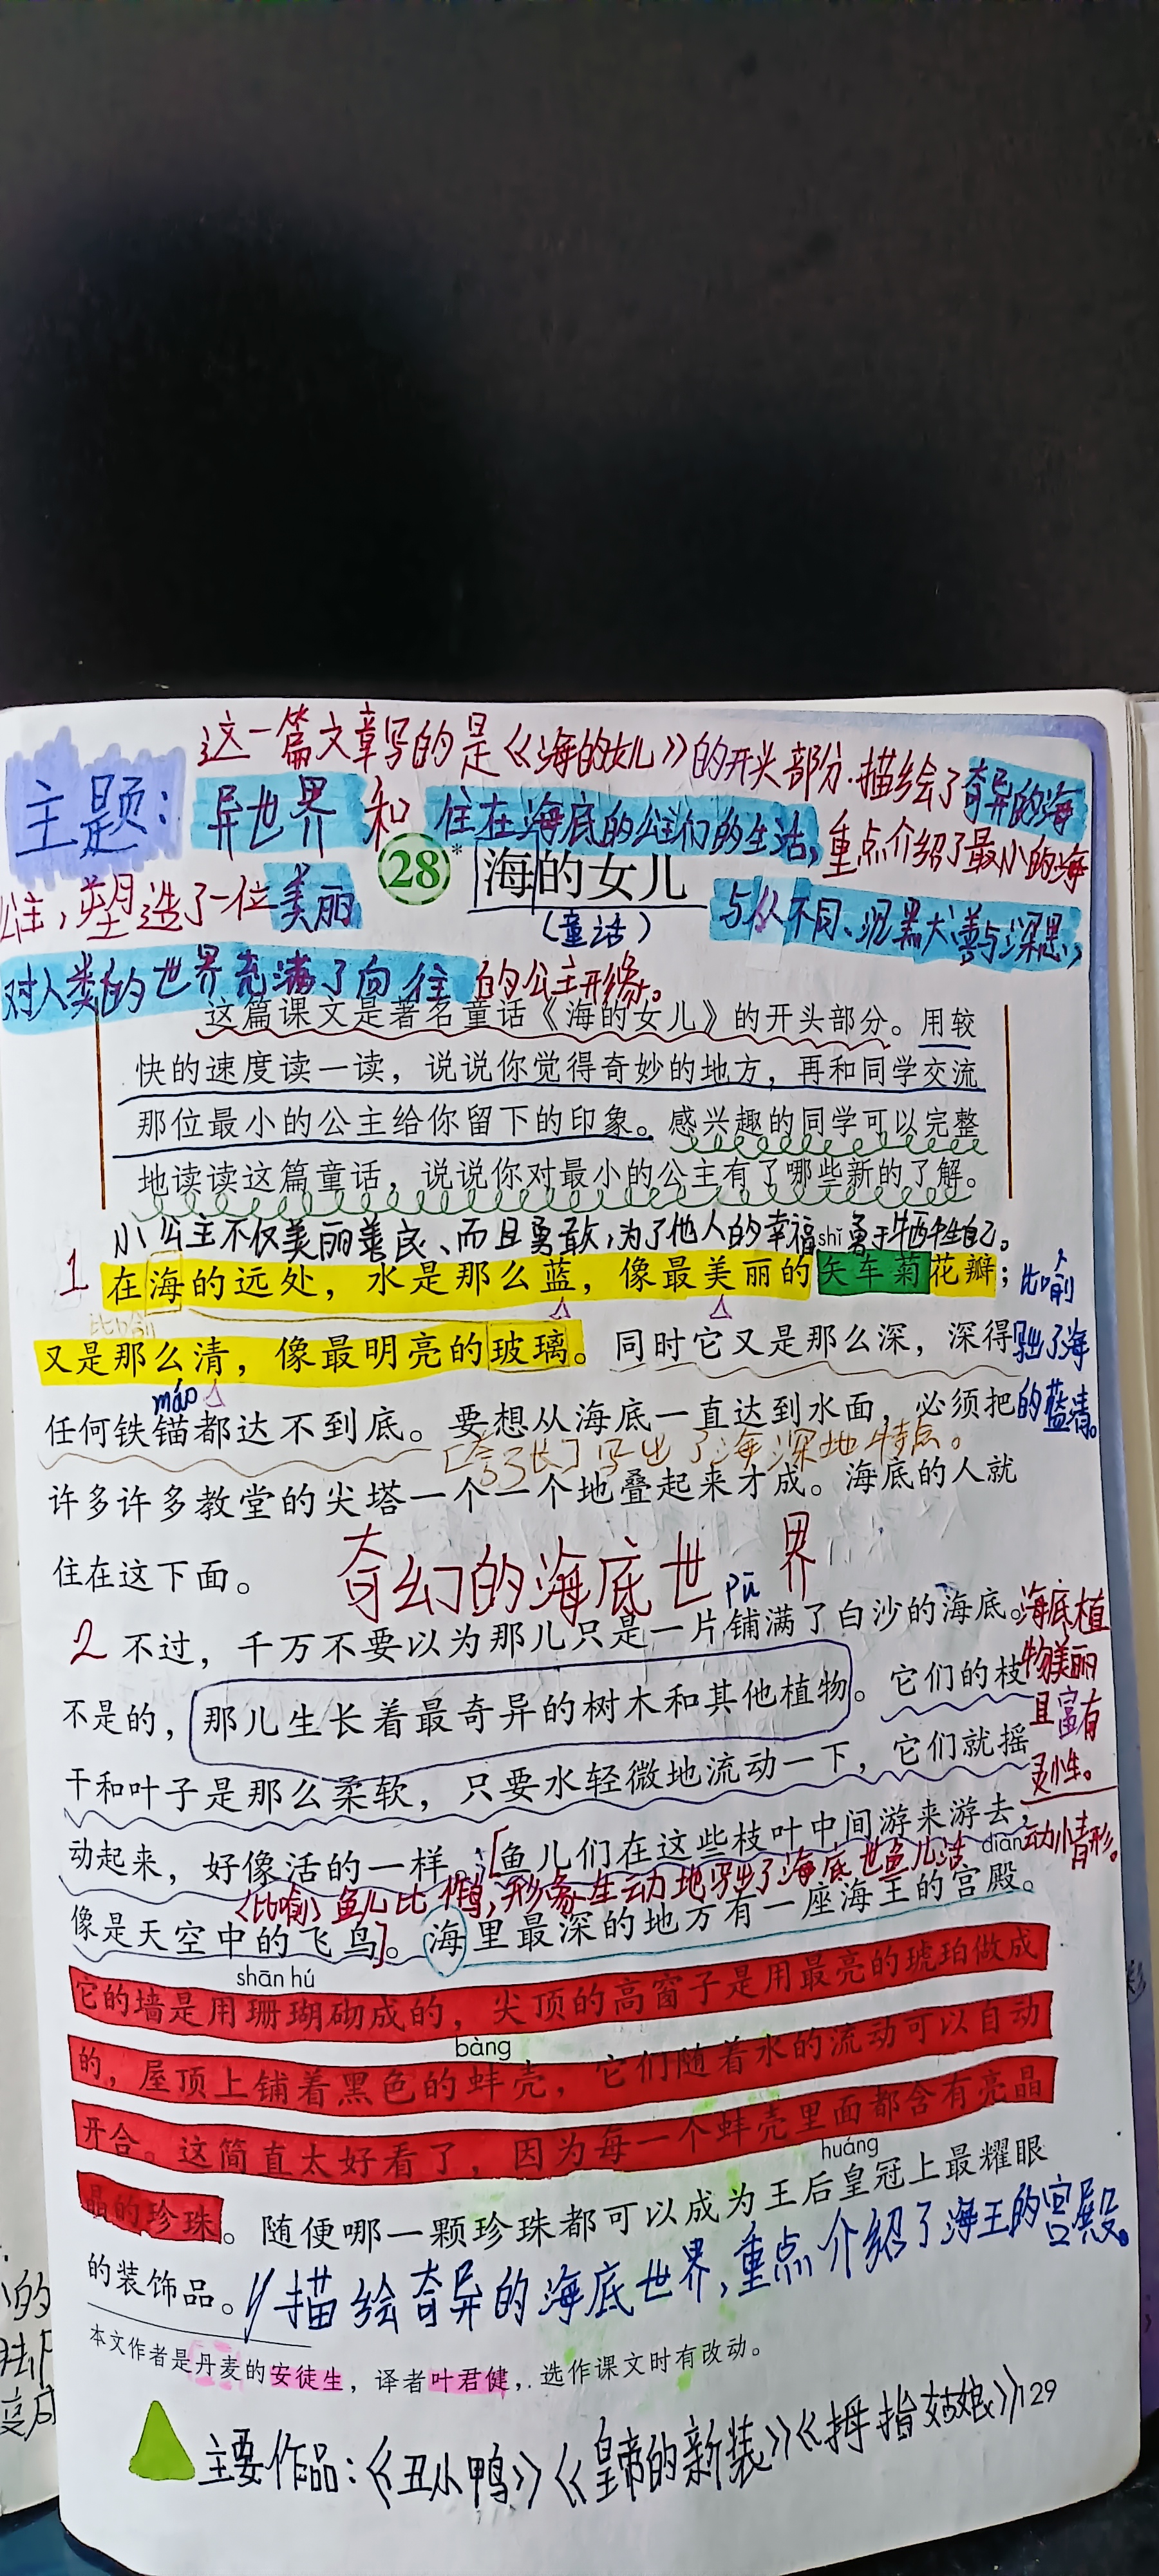 这一篇文章写的是《海的女儿》的开头部分.描绘了奇异的海
主题:
异世界和住在海底的公主们的生活,重点介绍了最小的海
28* 海的女儿
公主,塑造了一位美丽
与从不同、沉默大善与深思,
(童话)
对人类的世界充满了向往的公主形像。
这篇课文是著名童话《海的女儿》的开头部分。用较
快的速度读一读，说说你觉得奇妙的地方，再和同学交流
那位最小的公主给你留下的印象。感兴趣的同学可以完整
地读读这篇童话，说说你对最小的公主有了哪些新的了解。
小公主不仅美丽善良、而且勇敢,为了他人的幸福勇于牺牲自己。
shǐ
1 在海的远处，水是那么蓝，像最美丽的矢车菊花瓣；
比喻
比喻
又是那么清，像最明亮的玻璃。同时它又是那么深，深得
写出了海
máo
任何铁锚都达不到底。要想从海底一直达到水面，必须把
的蓝清。
[夸张]写出了海深地特点。
许多许多教堂的尖塔一个一个地叠起来才成。海底的人就
住在这下面。
奇幻的海底世界
pū
2 不过，千万不要以为那儿只是一片铺满了白沙的海底。
海底植
物美丽
且富有
灵性。
不是的，那儿生长着最奇异的树木和其他植物。它们的枝
干和叶子是那么柔软，只要水轻微地流动一下，它们就摇
动起来，好像活的一样。[鱼儿们在这些枝叶中间游来游去，
(比喻)鱼儿比作鸟,形象生动地写出了海底世鱼儿活动情形。
diàn
像是天空中的飞鸟]。海里最深的地方有一座海王的宫殿。
shān hú
它的墙是用珊瑚砌成的，尖顶的高窗子是用最亮的琥珀做成
bàng
的，屋顶上铺着黑色的蚌壳，它们随着水的流动可以自动
开合。这简直太好看了，因为每一个蚌壳里面都含有亮晶
huáng
晶的珍珠。随便哪一颗珍珠都可以成为王后皇冠上最耀眼
的装饰品。//描绘奇异的海底世界,重点介绍了海王的宫殿。
本文作者是丹麦的安徒生，译者叶君健，选作课文时有改动。
129
主要作品:《丑小鸭》《皇帝的新装》《拇指姑娘》